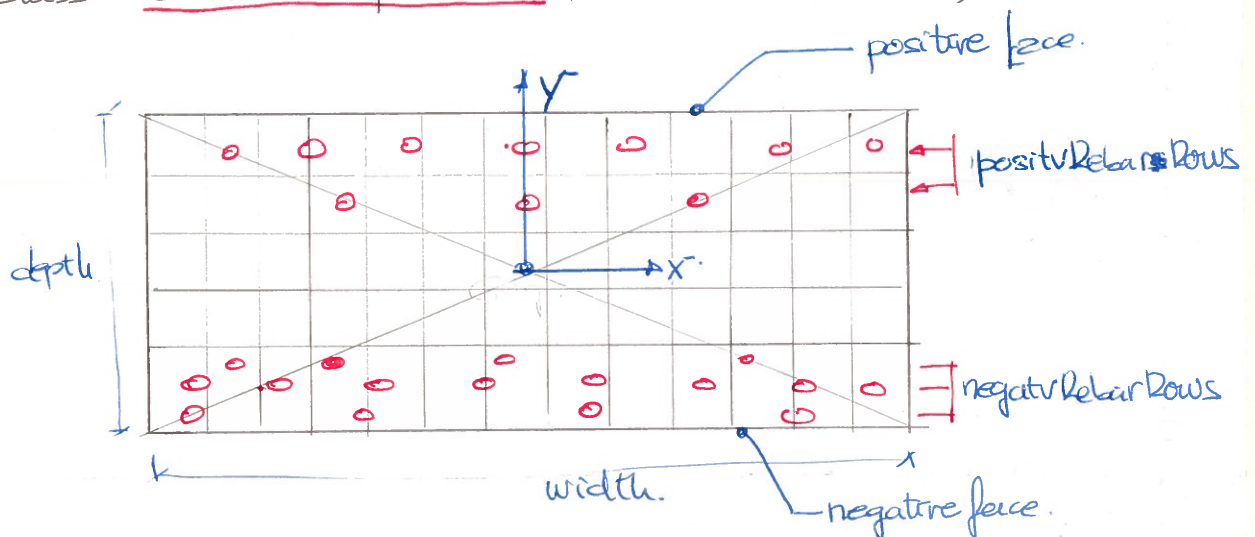 positive face.
Y
positvRebarsRows
X
depth
negatvRebarRows
width.
negative face.